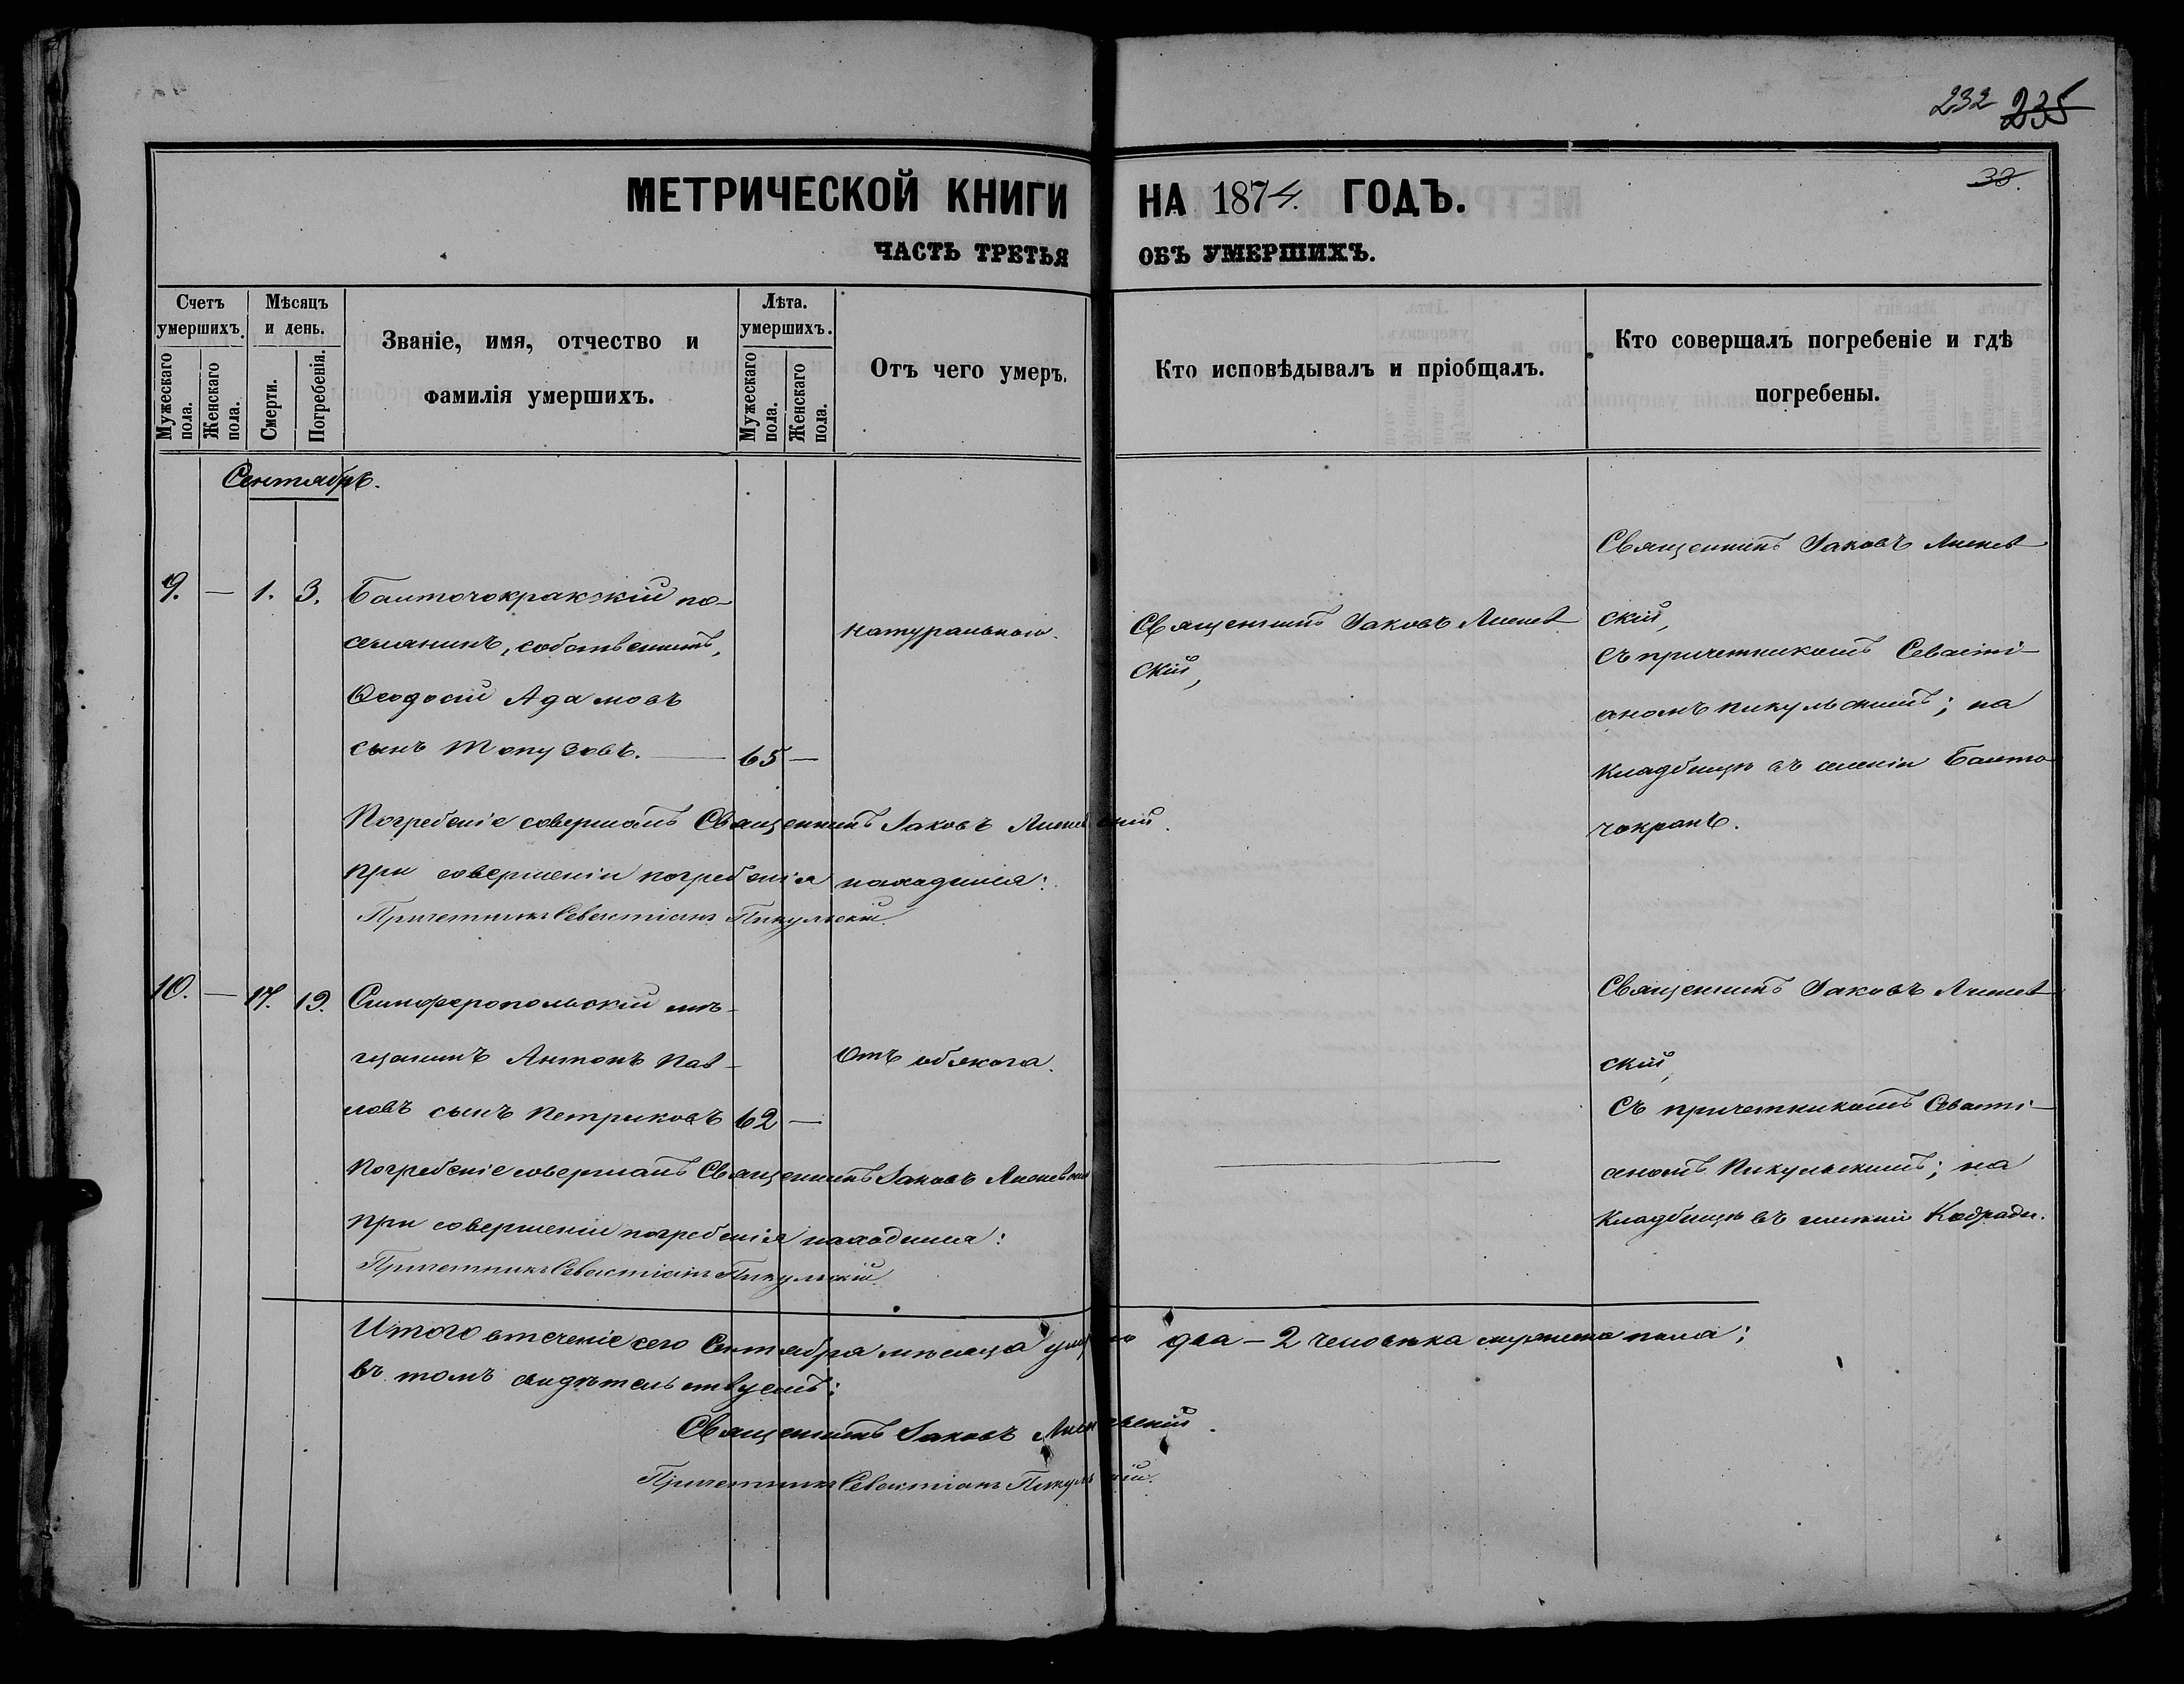 232 235
33.
МЕТРИЧЕСКОЙ КНИГИ НА 1874. ГОДЪ.
ЧАСТЬ ТРЕТЬЯ ОБЪ УМЕРШИХЪ.
Счетъ умершихъ.
Мужескаго пола.
Женскаго пола.
Мѣсяцъ и день.
Смерти.
Погребенія.
Званіе, имя, отчество и
фамилія умершихъ.
Лѣта. умершихъ.
Мужескаго пола.
Женскаго пола.
Отъ чего умеръ.
Кто исповѣдывалъ и пріобщалъ.
Кто совершалъ погребеніе и гдѣ
погребены.
Сентябрь.
9. — 1. 3.
Балточокракскій по-
селянинъ, собственникъ,
Ѳеодосій Адамовъ
сынъ Топузовъ. — 65 —
натуральною.
Священникъ Іаковъ
скій,
Священникъ Іаковъ
скій,
съ причетникомъ Севасті-
аномъ Пикульскимъ; на
кладбищѣ въ селеніи Балто
чокракъ.
Погребеніе совершалъ Священникъ Іаковъ
при совершеніи погребенія находился:
Причетникъ Севастіанъ Пикульскій.
10. — 17. 19.
Симферопольскій мѣ-
щанинъ Антонъ Пав-
ловъ сынъ Петриковъ 62 —
Отъ
Священникъ Іаковъ
скій,
Съ причетникомъ Севасті-
аномъ Пикульскимъ; на
кладбищѣ въ селеніи
Погребеніе совершалъ Священникъ Іаковъ
при совершеніи погребенія находился:
Причетникъ Севастіанъ Пикульскій.
Итого втеченіе сего Сентября мѣсяца умерло два — 2 человѣка мужеска пола;
въ томъ свидѣтельствуемъ:
Священникъ Іаковъ
Причетникъ Севастіанъ Пикульскій.